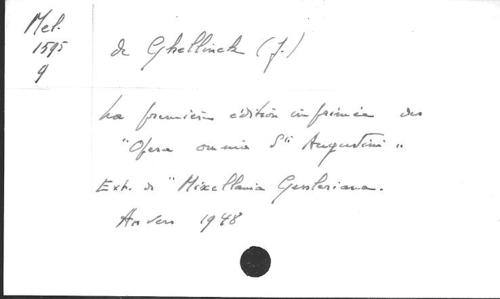 Mel.
1595
9
de Ghellinck (J.)
La première édition imprimée des
"Opera omnia Sti Augustini"
Ext. de "Miscellania Gessleriana.
Anvers 1948